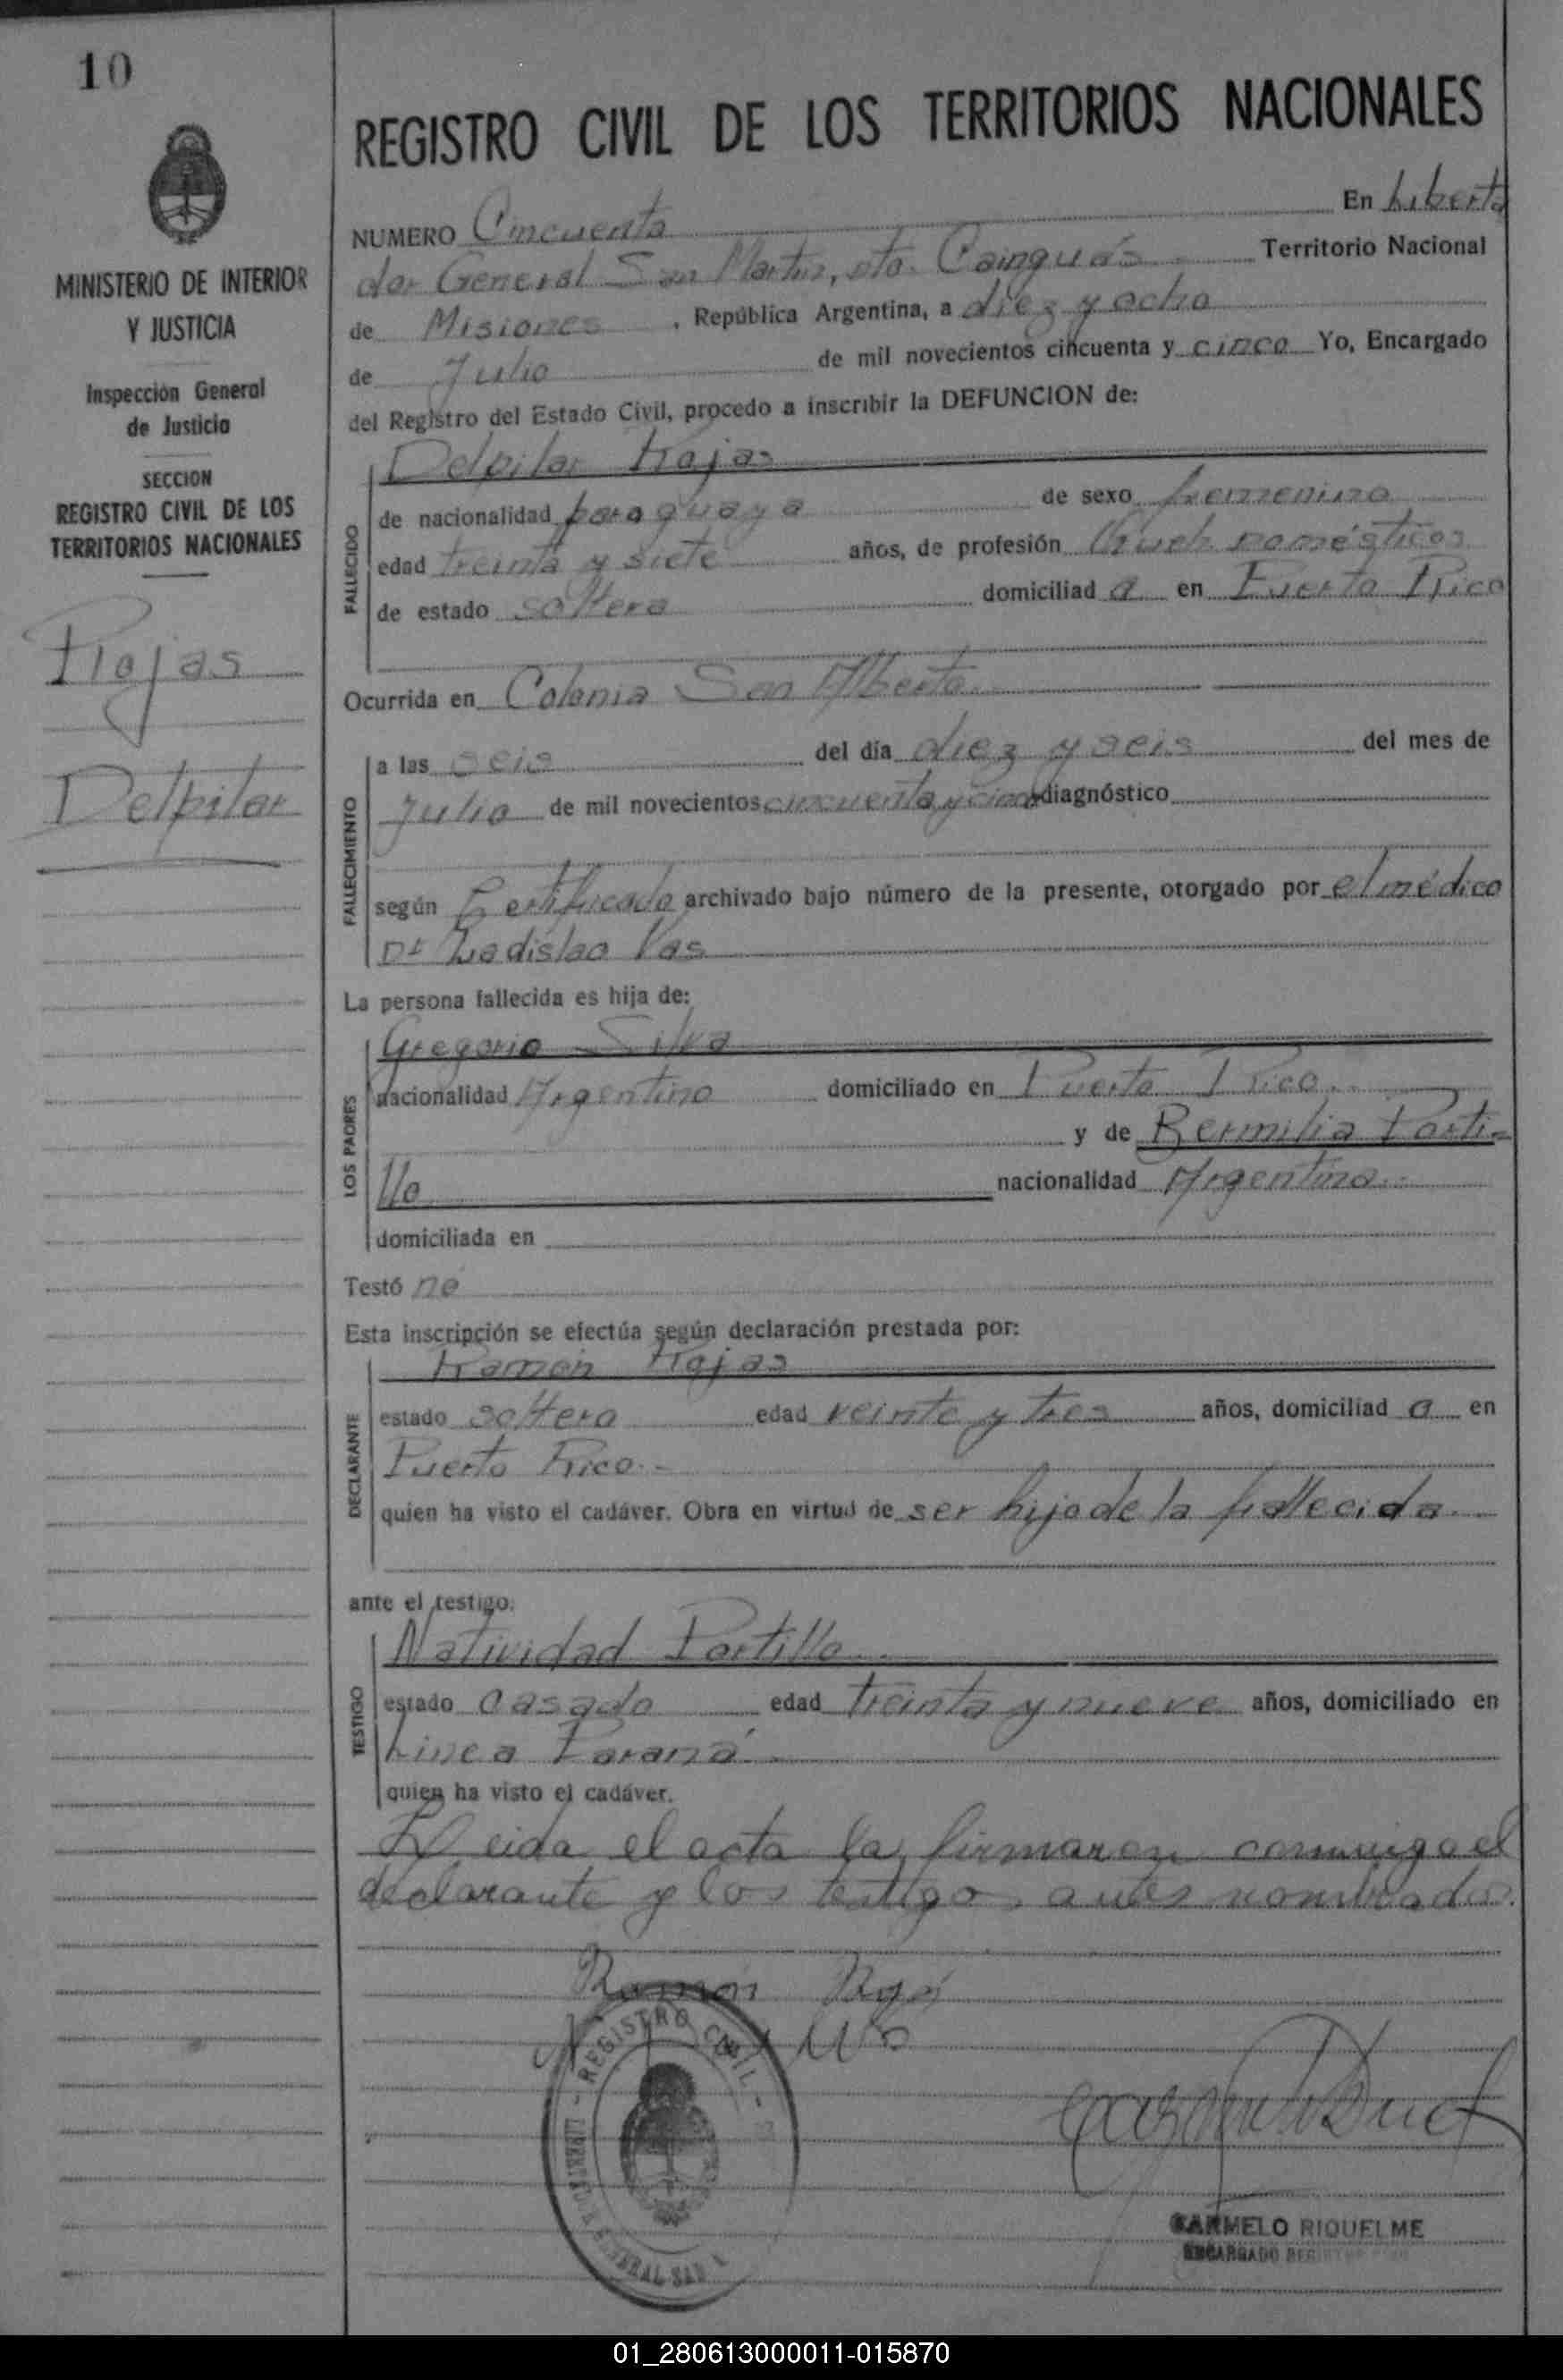 10
MINISTERIO DE INTERIOR
Y JUSTICIA
Inspección General
de Justicia
SECCION
REGISTRO CIVIL DE LOS
TERRITORIOS NACIONALES
Rojas
Delpilar
REGISTRO CIVIL DE LOS TERRITORIOS NACIONALES
NUMERO Cincuenta En Liberta
dor General San Martin, dto. Cainguás Territorio Nacional
de Misiones, República Argentina, a diez y ocho
de Julio de mil novecientos cincuenta y cinco Yo, Encargado
del Registro del Estado Civil, procedo a inscribir la DEFUNCION de:
FALLECIDO
Delpilar Rojas
de nacionalidad paraguaya de sexo femenino
edad treinta y siete años, de profesión Queh. Domésticos
de estado soltera domiciliad a en Puerto Rico
Ocurrida en Colonia San Alberto
FALLECIMIENTO
a las seis del día diez y seis del mes de
Julio de mil novecientos cincuenta y cinco diagnóstico
según Certificado archivado bajo número de la presente, otorgado por el médico
Dr Ladislao Vas
La persona fallecida es hija de:
LOS PADRES
Gregorio Silva
nacionalidad Argentino domiciliado en Puerto Rico..
y de Bermilia Porti-
llo nacionalidad Argentina..
domiciliada en
Testó no
Esta inscripción se efectúa según declaración prestada por:
DECLARANTE
Ramón Rojas
estado soltero edad veinte y tres años, domiciliad o en
Puerto Rico.-
quien ha visto el cadáver. Obra en virtud de ser hijo de la fallecida.
ante el testigo:
TESTIGO
Natividad Portillo
estado casado edad treinta y nueve años, domiciliado en
Linea Paraná
quien ha visto el cadáver.
Leida el acta la firmaron conmigo el
declarante y los testigos antes nombrados.
Ramón Rojas
REGISTRO CIVIL
CARMELO RIQUELME
ENCARGADO REGISTRO
01_280613000011-015870